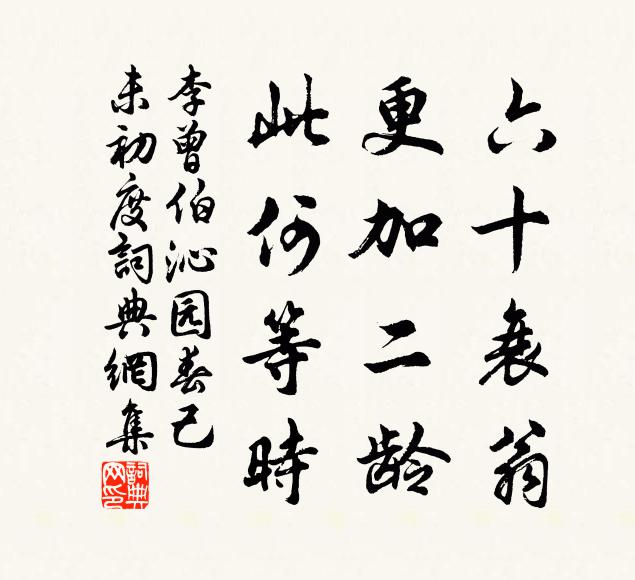 六十衰翁
更加二龄
此何等時
李曾伯沁园春己
未初度詞典網集
詞典网印